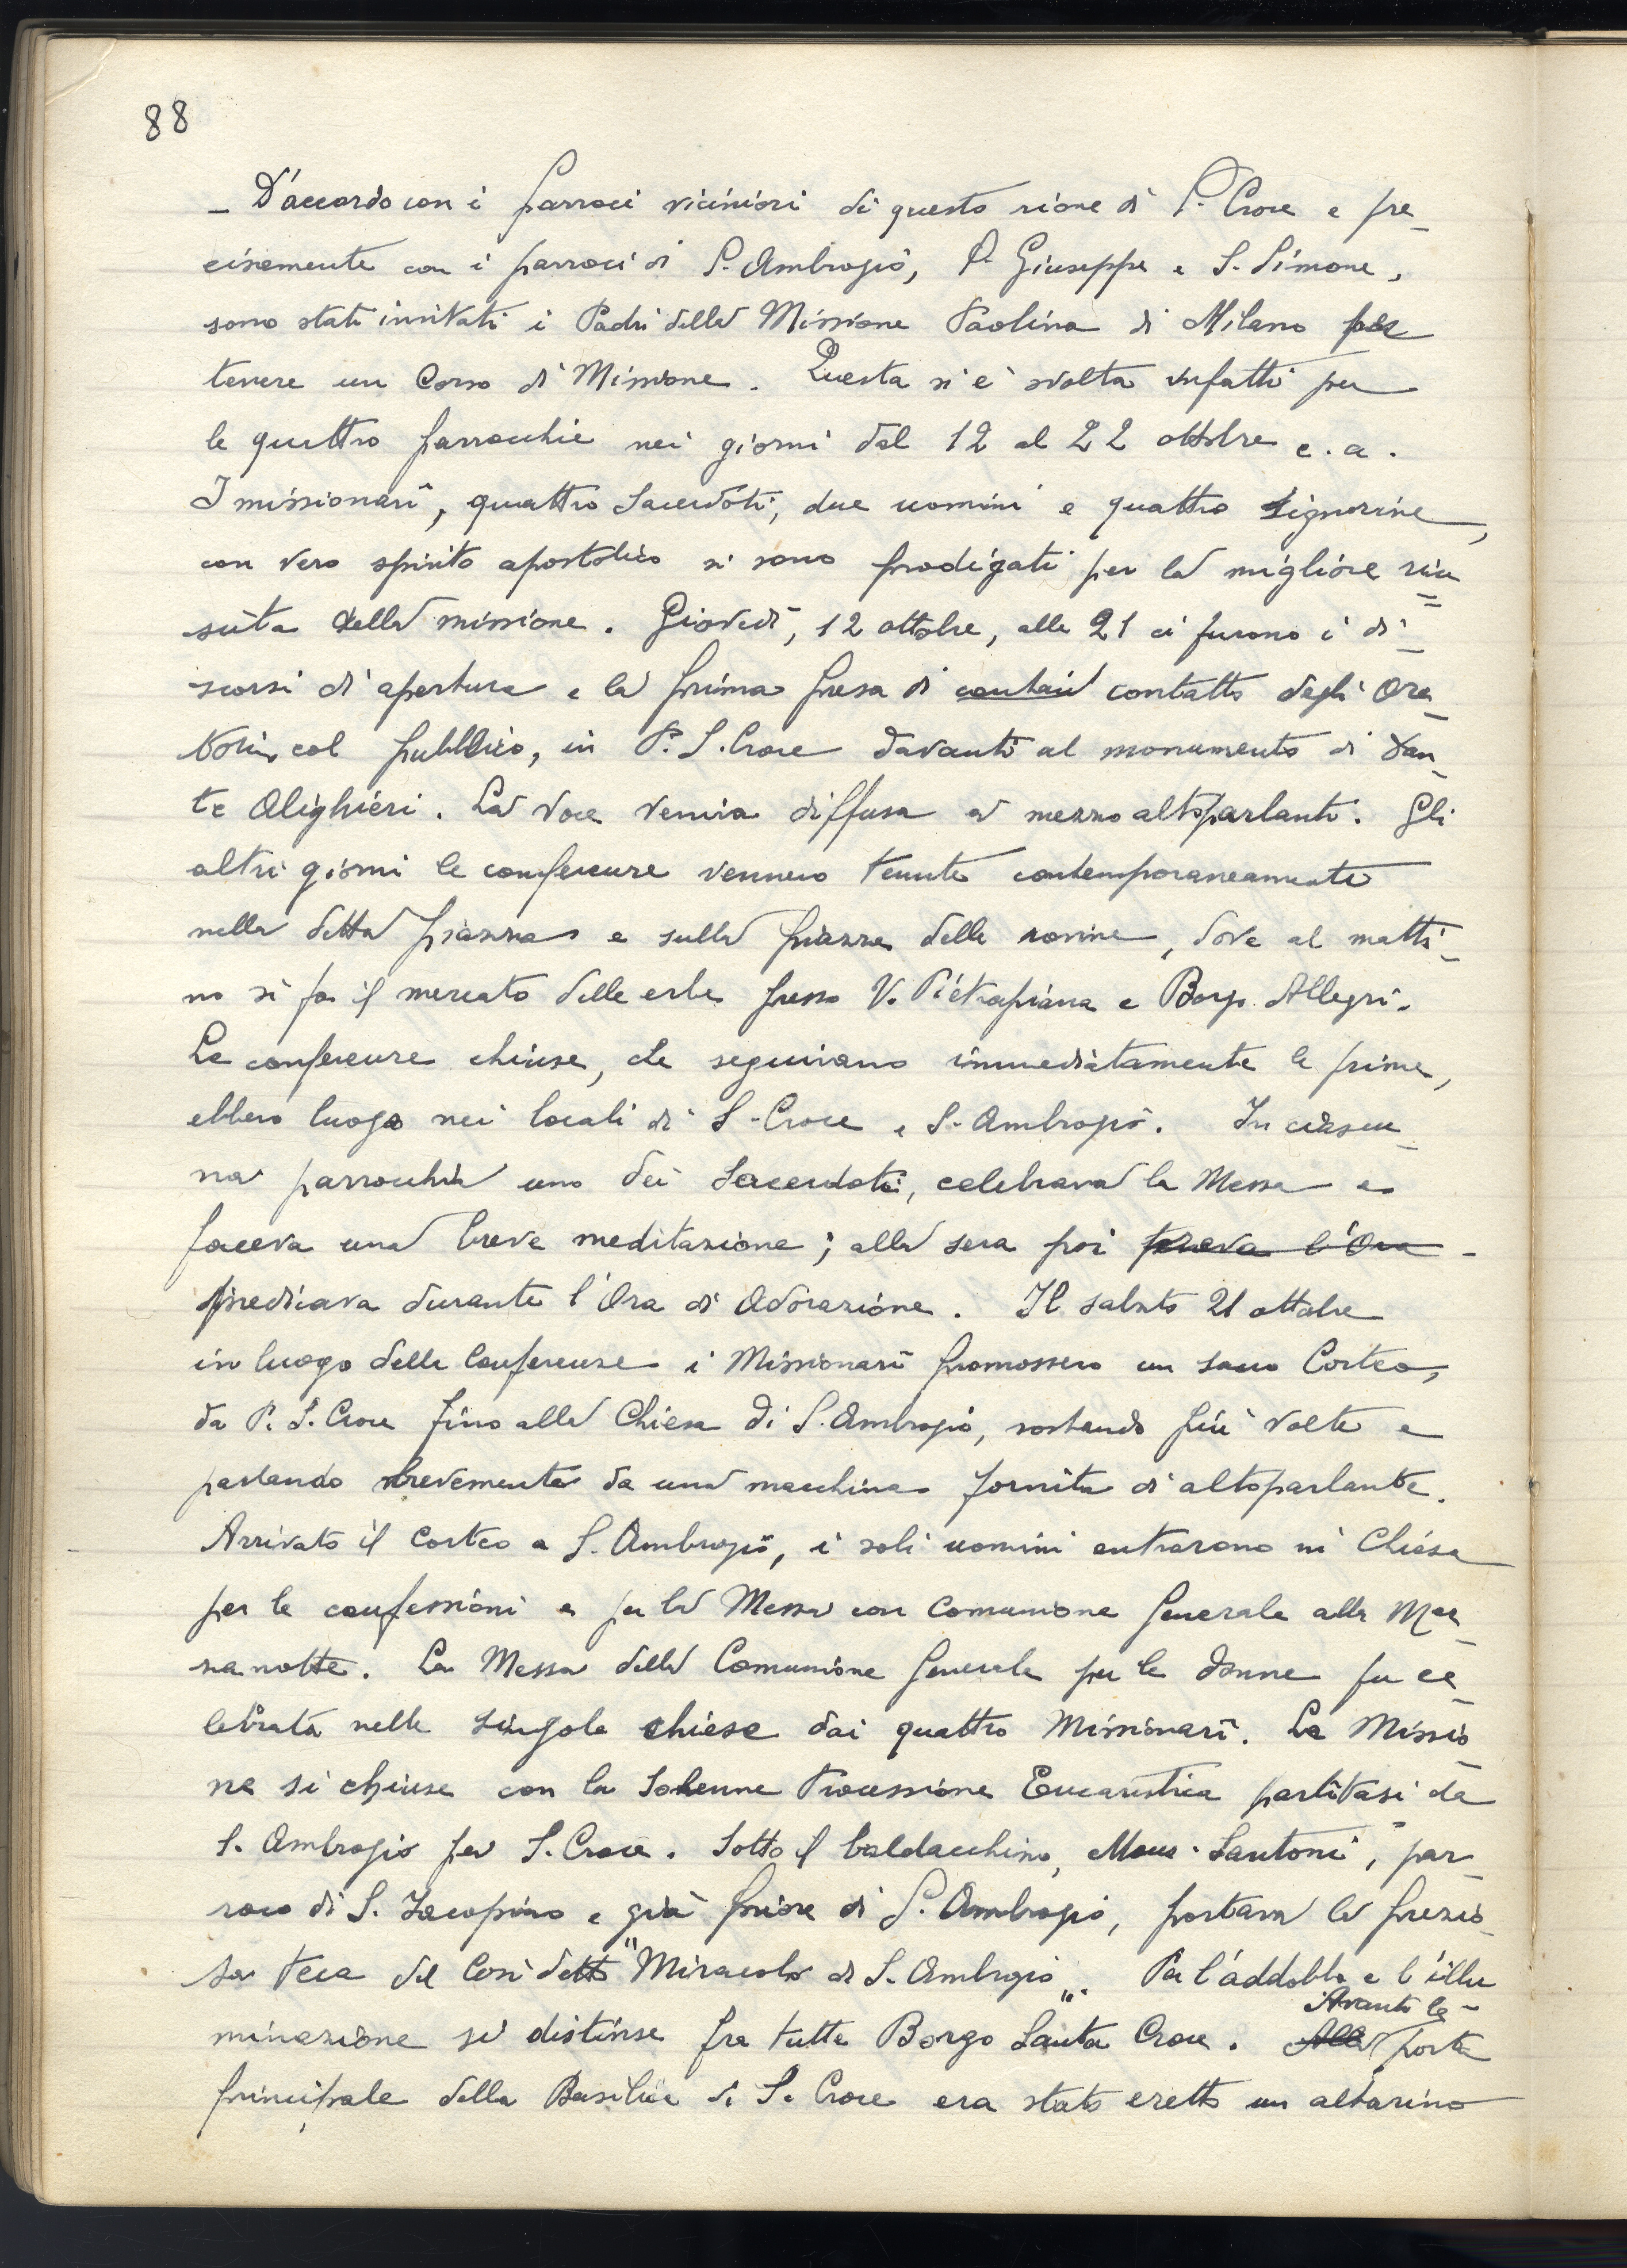 88
– D'accordo con i parroci viciniori di questo rione di S. Croce e pre-
cisamente con i parroci di S. Ambrogio, S. Giuseppe e S. Simone,
sono stati invitati i Padri della Missione Paolina di Milano per
tenere un Corso di Missione. Questa si è svolta infatti per
le quattro parrocchie nei giorni dal 12 al 22 ottobre c.a.
I missionari, quattro Sacerdoti, due uomini e quattro signorine,
con vero spirito apostolico si sono prodigati per la migliore riu=
scita della missione. Giovedì, 12 ottobre, alle 21 ci furono i di-
scorsi di apertura e la prima presa di contatto degli Ora-
tori, col pubblico, in P. S. Croce davanti al monumento di Dan-
te Alighieri. La voce veniva diffusa a mezzo altoparlanti. Gli
altri giorni le conferenze vennero tenute contemporaneamente
nella detta piazza e sulla piazza delle rovine, dove al matti-
no si fa il mercato delle erbe presso V. Pietrapiana e Borgo Allegri.
Le conferenze chiuse, che seguivano immediatamente le prime,
ebbero luogo nei locali di S. Croce e S. Ambrogio. In ciascu-
na parrocchia uno dei Sacerdoti, celebrava la Messa e
faceva una breve meditazione; alla sera poi l'Ora -
predicava durante l'Ora di Adorazione. Il sabato 21 ottobre
in luogo delle Conferenze i Missionari promossero un sacro Corteo,
da P. S. Croce fino alla Chiesa di S. Ambrogio, sostando più volte e
parlando brevemente da una macchina fornita di altoparlante.
Arrivato il Corteo a S. Ambrogio, i soli uomini entrarono in Chiesa
per le confessioni e per la Messa con Comunione Generale alla Mez-
zanotte. La Messa della Comunione Generale per le donne fu ce-
lebrata nelle singole chiese dai quattro Missionari. La Missio-
ne si chiuse con la solenne Processione Eucaristica partitasi da
S. Ambrogio per S. Croce. Sotto il baldacchino, Mons. Santoni, par-
roco di S. Jacopino e già Priore di S. Ambrogio, portava la prezio-
sa teca del così detto "Miracolo di S. Ambrogio". Per l'addobbo e l'illu
minazione si distinse fra tutte Borgo Santa Croce. Alla Avanti la - porta
principale della Basilica di S. Croce era stato eretto un altarino